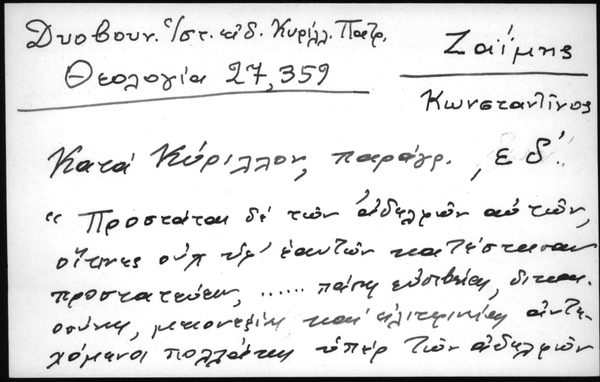 Δυοβουν. Ἱστ. ἐκδ. Κυρίλλ. Πατρ.
Θεολογία 27, 359
Ζαΐμης
Κωνσταντῖνος
Κατά Κύριλλον, παράγρ. , εδ.
"Προστάται δέ τῶν ἀδελφῶν αὐτῶν,
οἵτινες ὑφ' ἑαυτῶν κατέστησαν
προστατεύειν, ...... πάσῃ εὐσεβείᾳ, δικαι-
οσύνῃ, καί ἀντε-
χόμενοι πολλάκις ὑπέρ τῶν ἀδελφῶν